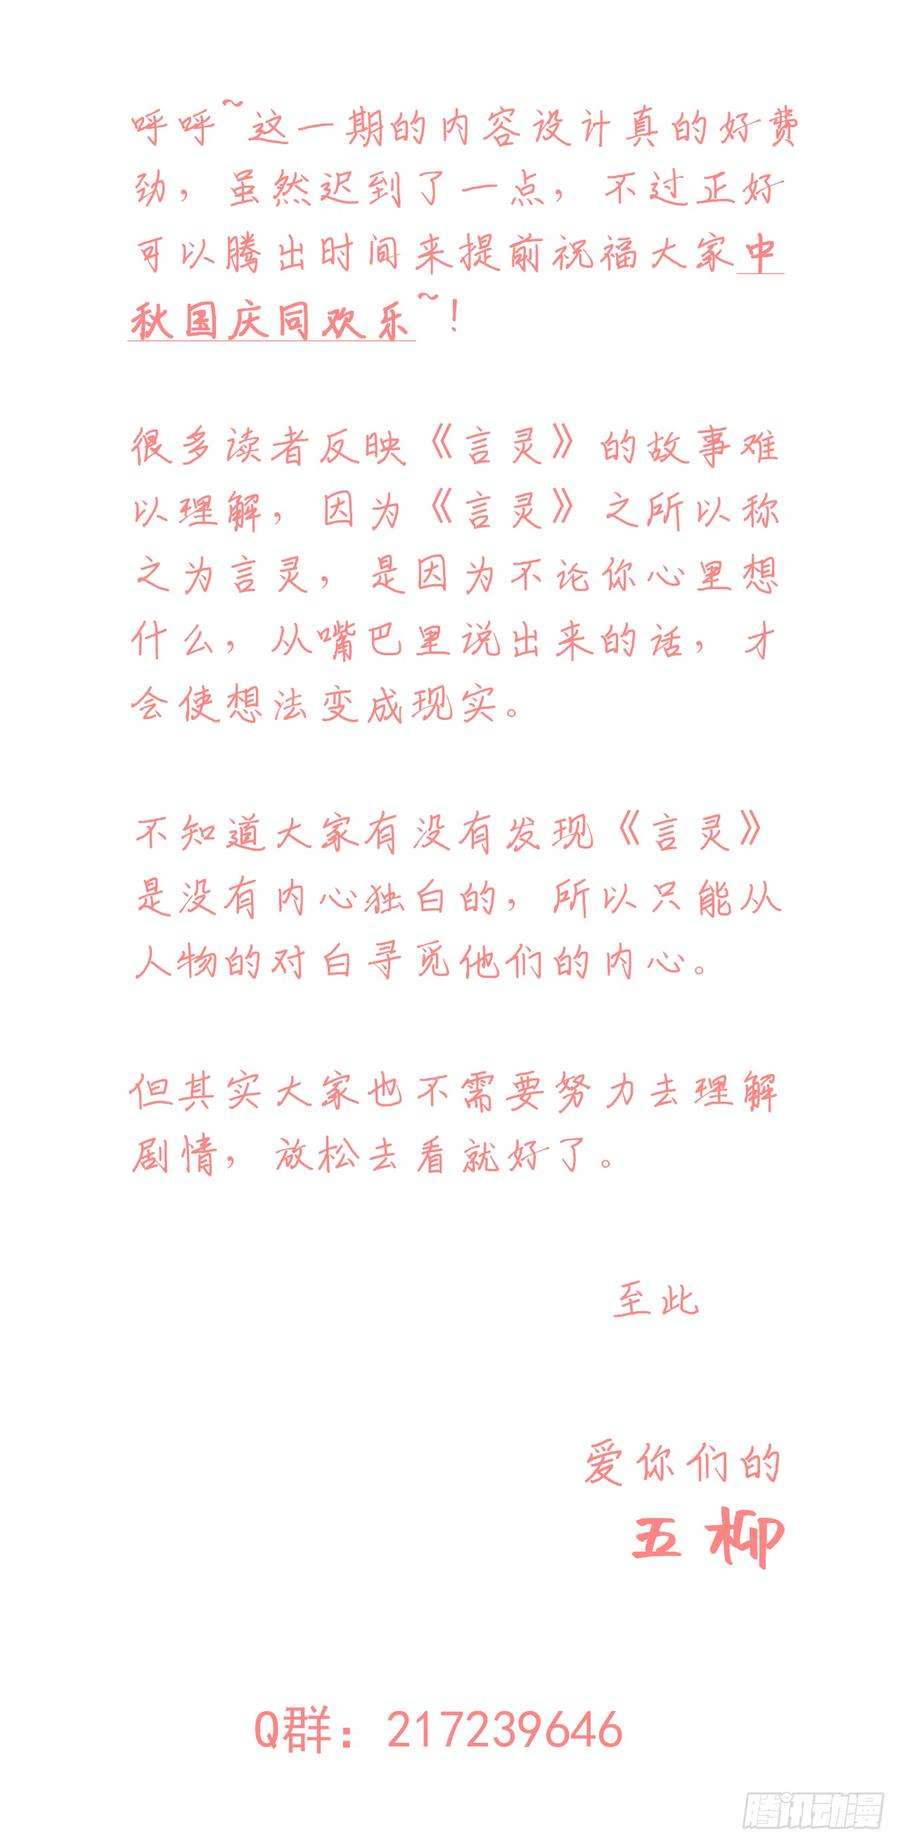 呼呼~这一期的内容设计真的好费
劲，虽然迟到了一点，不过正好
可以腾出时间来提前祝福大家中
秋国庆同欢乐~！
很多读者反映《言灵》的故事难
以理解，因为《言灵》之所以称
之为言灵，是因为不论你心里想
什么，从嘴巴里说出来的话，才
会使想法变成现实。
不知道大家有没有发现《言灵》
是没有内心独白的，所以只能从
人物的对白寻觅他们的内心。
但其实大家也不需要努力去理解
剧情，放松去看就好了。
至此
爱你们的
五柳
Q群：217239646
腾讯动漫